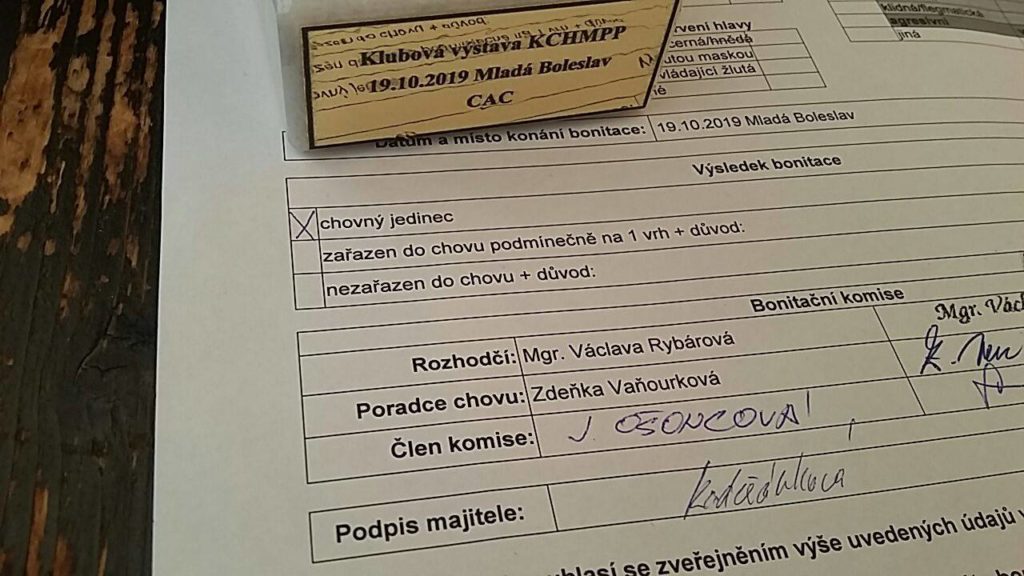 klidná/flegmatická
agresivní
jiná
rvení hlavy
černá/hnědá
utou maskou
vládající žlutá
né
Klubová výstava KCHMPP
19.10.2019 Mladá Boleslav
CAC
Datum a místo konání bonitace: 19.10.2019 Mladá Boleslav
Výsledek bonitace
X chovný jedinec
zařazen do chovu podmínečně na 1 vrh + důvod:
nezařazen do chovu + důvod:
Bonitační komise
Rozhodčí: Mgr. Václava Rybárová Mgr. Václ
Poradce chovu: Zdeňka Vaňourková
Člen komise: J. OSONCOVÁ
Podpis majitele:
uhlasí se zveřejněním výše uvedených údajů v